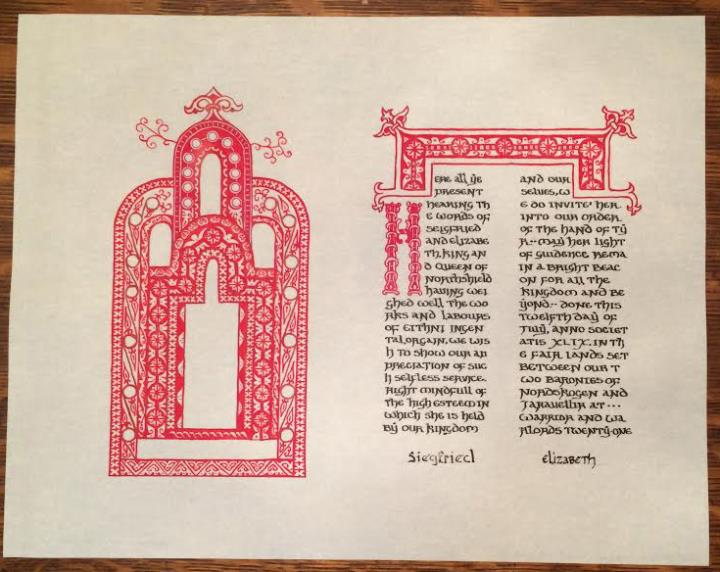 Here all ye
present
hearing th
e words of
Seigfried
and Elizabe
th, King an
d Queen of
Northshield
having wei
ghed well the wo
rks and labours
of Eithni ingen
Talorgain, we wis
h to show our ap
preciation of suc
h selfless service.
Right mindfull of
the high esteem in
which she is held
by our kingdom
Siegfried
and our
selves, w
e do invite her
into our order
of the hand of Tÿ
r·· may her light
of guidence rema
in a bright beac
on for all the
kingdom and be
yond·· done this
twelfth day of
July, anno societ
atis XLIX. in th
e fair lands set
between our t
wo baronies of
Nordskogen and
Jaravellir at ···
Warrior and Wa
rlords twenty-one
Elizabeth